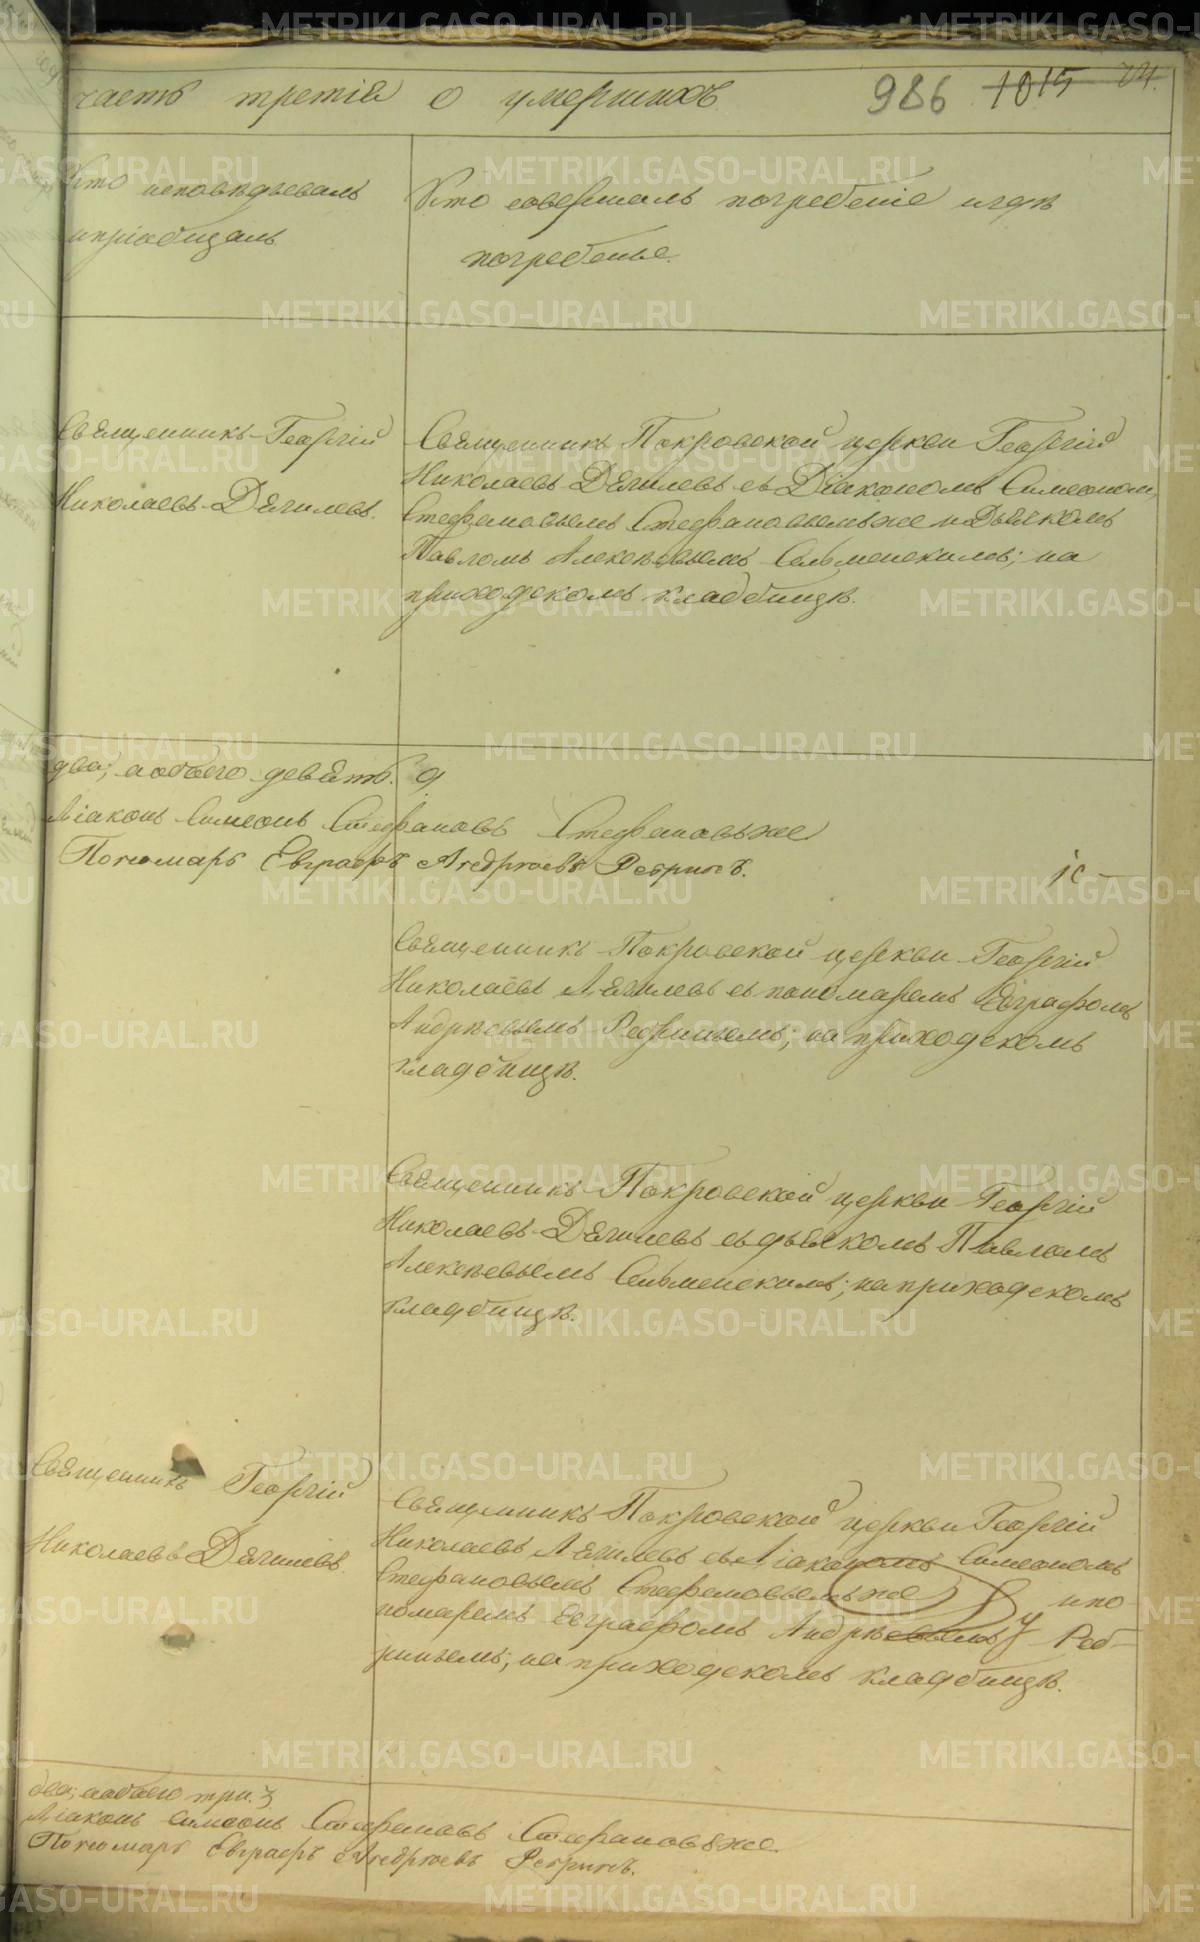 часть третія о умершихъ. 986 1015 24.
Кто исповѣдывалъ
и пріобщалъ
Кто совершалъ погребеніе и гдѣ
погребены.
Священникъ Георгій
Николаевъ Дягилевъ.
Священникъ Покровской церкви Георгій
Николаевъ Дягилевъ съ Діакономъ Симеономъ
Стефановымъ Стефановымъ же и Дьячкомъ
Павломъ Алексѣевымъ Сельменскимъ; на
приходскомъ кладбищѣ.
два; а обоего девять. 9.
Діаконъ Симеонъ Стефановъ Стефановъ же
Пономарь Евграфъ Андреевъ Ребринъ.
Священникъ Покровской церкви Георгій
Николаевъ Дягилевъ съ пономаремъ Евграфомъ
Андрѣевымъ Ребринымъ; на приходскомъ
кладбищѣ.
Священникъ Покровской церкви Георгій
Николаевъ Дягилевъ съ дьячкомъ Павломъ
Алексѣевымъ Сельменскимъ; на приходскомъ
кладбищѣ.
Священникъ Георгій
Николаевъ Дягилевъ.
Священникъ Покровской церкви Георгій
Николаевъ Дягилевъ съ Діакономъ Симеономъ
Стефановымъ Стефановымъ же и по-
номаремъ Евграфомъ Андрѣевымъ Реб-
ринымъ; на приходскомъ кладбищѣ.
два; а обоего три. 3
Діаконъ Симеонъ Стефановъ Стефановъ же.
Пономарь Евграфъ Андреевъ Ребринъ.